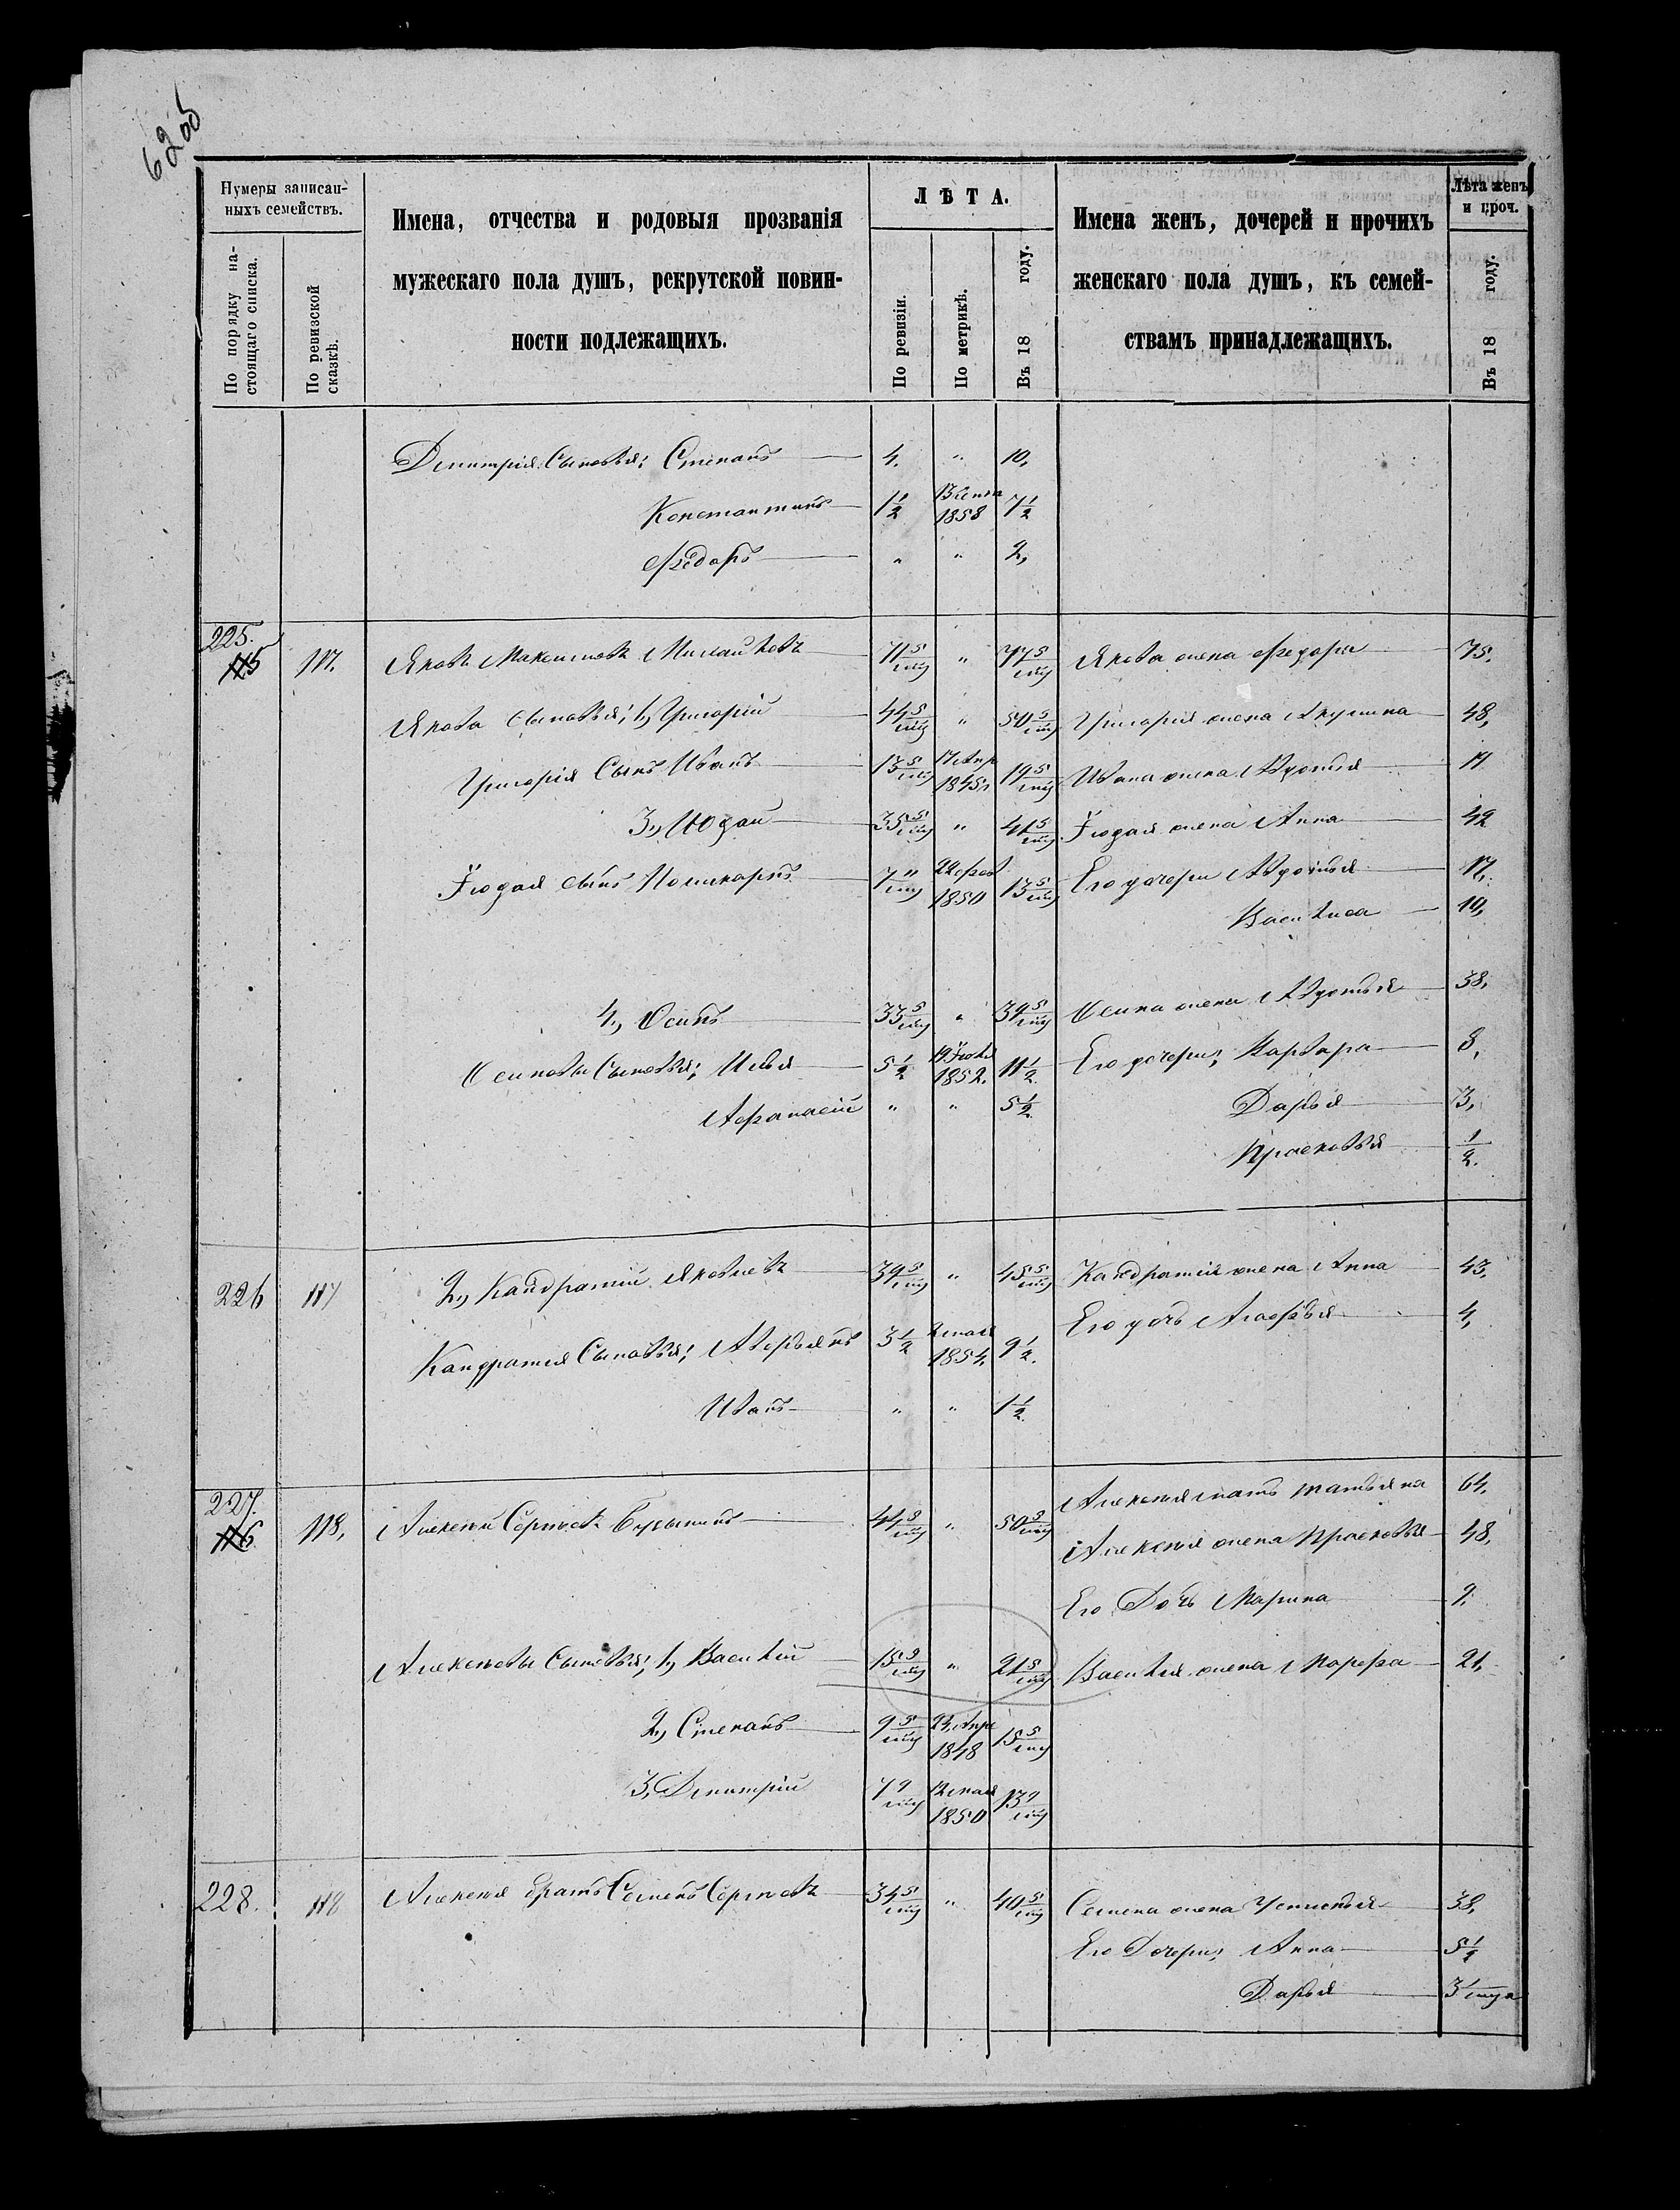 62об
Нумеры записан-
ныхъ семействъ.
По порядку на-
стоящаго списка.
По ревизской
сказкѣ.
Имена, отчества и родовыя прозванія
мужескаго пола душъ, рекрутской повин-
ности подлежащихъ.
ЛѢТА.
По ревизіи.
По метрикѣ.
Въ 18 году.
Имена женъ, дочерей и прочихъ
женскаго пола душъ, къ семей-
ствамъ принадлежащихъ.
Лѣта женъ
и проч.
Въ 18 году.
Дмитрія Сыновья; Степанъ 4. " 10,
Константинъ 1½ 1858 7½
Федоръ " " 2,
225.
115 117. Яковъ Максимовъ 71 5/мц " 77 5/мц Якова жена Федора 75.
Якова Сыновья; 1, Григорій 44 5/мц " 50 5/мц Григорія жена Акулина 48,
Григорія Сынъ Иванъ 13 5/мц 17 Апр 1845г 19 5/мц Ивана жена Авдотья 19
3, Іюдай 35 5/мц " 41 5/мц Іюдая жена Анна 42
Іюдая сынъ Поликарпъ 7 11/мц 22 фев 1850 13 5/мц Его дочери Авдотья 17,
Василиса 10,
4, Осипъ 33 5/мц " 39 5/мц Осипа жена Авдотья 38,
Осиповы Сыновья; Илья 5½ 19 Іюля 1852. 11½ Его дочери, Варвара 8,
Афанасій " " 5½ Дарья 3,
Прасковья ½.
226 117 2, Кандратій Яковлевъ 39 5/мц " 45 5/мц Кандратія жена Анна 43,
Кандратія Сыновья; Аверьянъ 3½ 2 мая 1854. 9½. Его дочь Агафья 4,
Иванъ " " 1½
227.
116 118, Алексей Сергеевъ 44 5/мц " 50 5/мц Алексея мать Татьяна 64,
Алексея жена Прасковья 48,
Его Дочь Марина 9.
Алексеевы Сыновья; 1, Василій 15 5/мц " 21 5/мц Василія жена Марфа 21,
2, Степанъ 9 5/мц 24 Апре 1848 15 5/мц
3, Дмитрій 7 9/мц 12 мая 1850 13 9/мц
228. 118 Алексея братъ Семенъ Сергеевъ 34 5/мц " 40 5/мц Семена жена Устинья 38,
Его Дочери, Анна 5½
Дарья 3